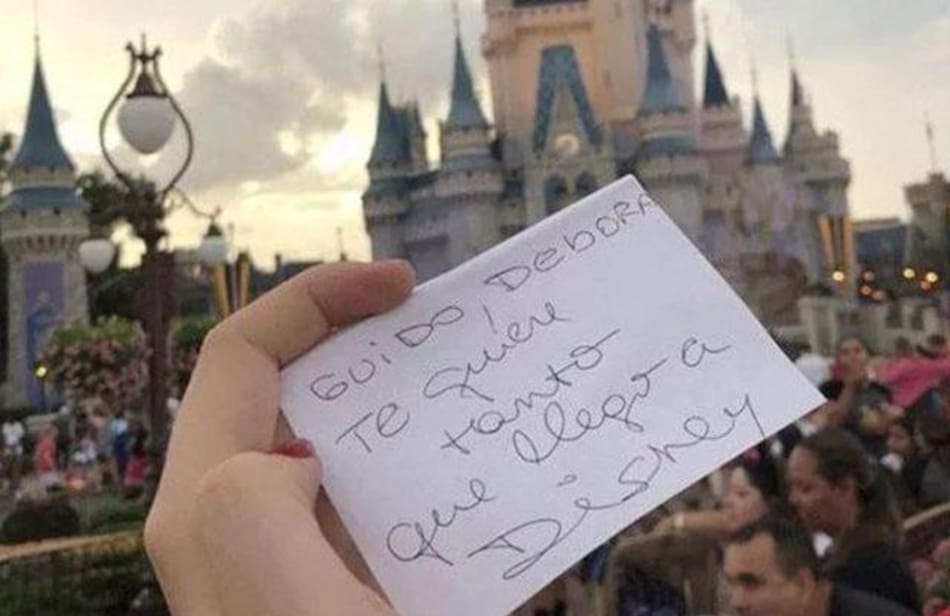 GUIDO, DEBORA
TE quiere
tanto
que llegó a
Disney